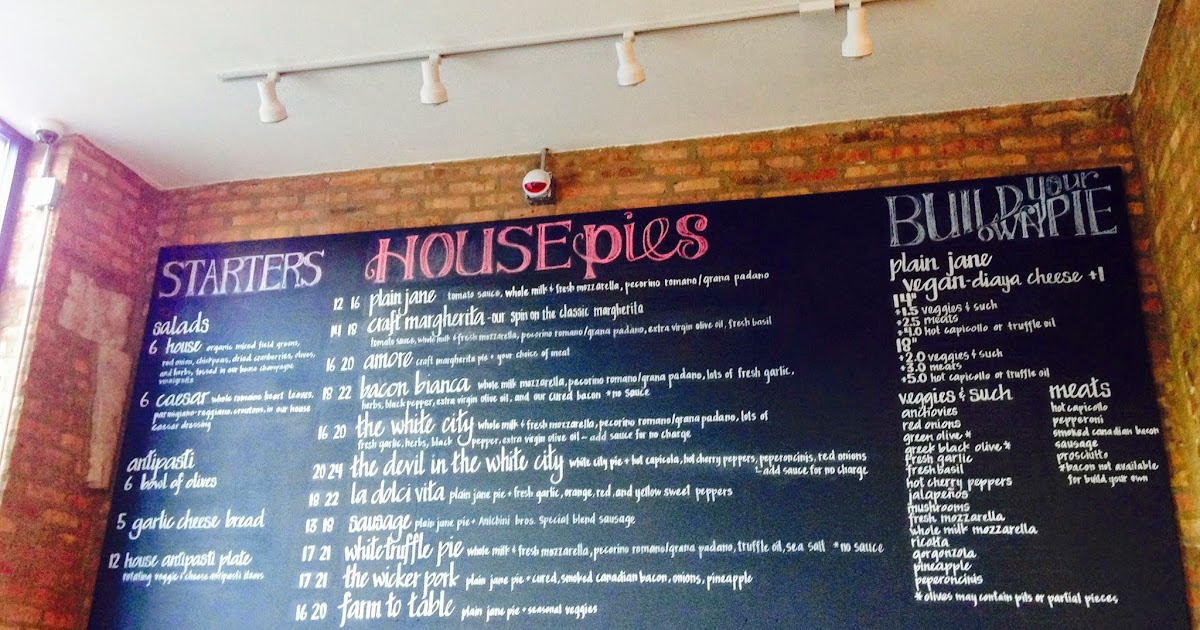 STARTERS
salads
6 house organic mixed field greens,
red onion, chickpeas, dried cranberries, olives,
and herbs, tossed in our house champagne
vinaigrette
6 caesar whole romaine heart leaves,
parmigiano-reggiano, croutons, in our house
caesar dressing
antipasti
6 bowl of olives
5 garlic cheese bread
12 house antipasti plate
rotating veggie + cheese antipasti items
HOUSE pies
12 16 plain jane tomato sauce, whole milk & fresh mozzarella, pecorino romano/grana padano
14 18 craft margherita - our spin on the classic margherita
tomato sauce, whole milk & fresh mozzarella, pecorino romano/grana padano, extra virgin olive oil, fresh basil
16 20 amore craft margherita pie + your choice of meat
18 22 bacon bianca whole milk mozzarella, pecorino romano/grana padano, lots of fresh garlic,
herbs, black pepper, extra virgin olive oil, and our cured bacon *no sauce
16 20 the white city whole milk & fresh mozzarella, pecorino romano/grana padano, lots of
fresh garlic, herbs, black pepper, extra virgin olive oil - add sauce for no charge
20 24 the devil in the white city white city pie + hot capicola, hot cherry peppers, peperoncinis, red onions
- add sauce for no charge
18 22 la dolci vita plain jane pie + fresh garlic, orange, red, and yellow sweet peppers
13 18 sausage plain jane pie + Anichini bros. Special blend sausage
17 21 white truffle pie whole milk & fresh mozzarella, pecorino romano/grana padano, truffle oil, sea salt *no sauce
17 21 the wicker park plain jane pie + cured, smoked canadian bacon, onions, pineapple
16 20 farm to table plain jane pie + seasonal veggies
BUILD your OWN PIE
plain jane
vegan-diaya cheese +1
14"
+1.5 veggies & such
+2.5 meats
+4.0 hot capicollo or truffle oil
18"
+2.0 veggies & such
+3.0 meats
+5.0 hot capicollo or truffle oil
veggies & such
anchovies
red onions
green olive *
greek black olive *
fresh garlic
fresh basil
hot cherry peppers
jalapeños
mushrooms
fresh mozzarella
whole milk mozzarella
ricotta
gorgonzola
pineapple
peperoncinis
*olives may contain pits or partial pieces
meats
hot capicollo
pepperoni
smoked canadian bacon
sausage
prosciutto
*bacon not available
for build your own